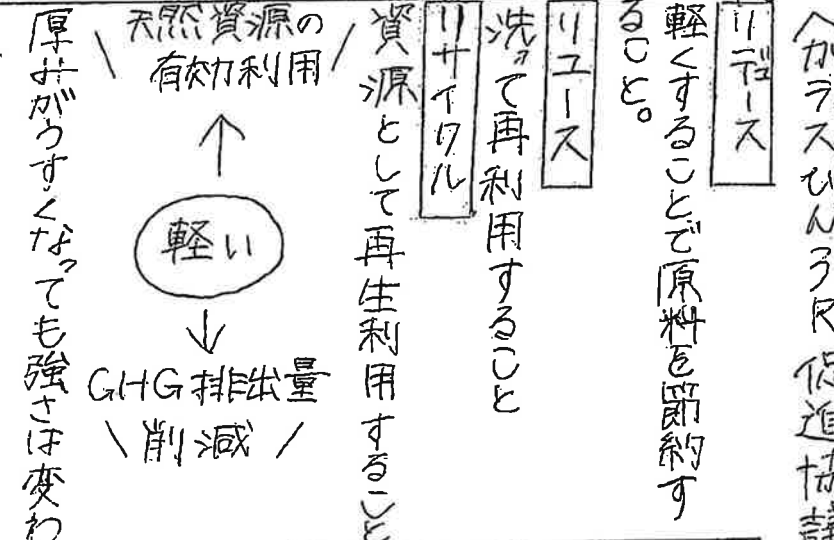 ガラスびん3R促進協議
リデュース
軽くすることで原料を節約す
ること。
リユース
洗って再利用すること
リサイクル
資源として再生利用すること
天然資源の
有効利用
軽い
GHG排出量
削減
厚みがうすくなっても強さは変わ